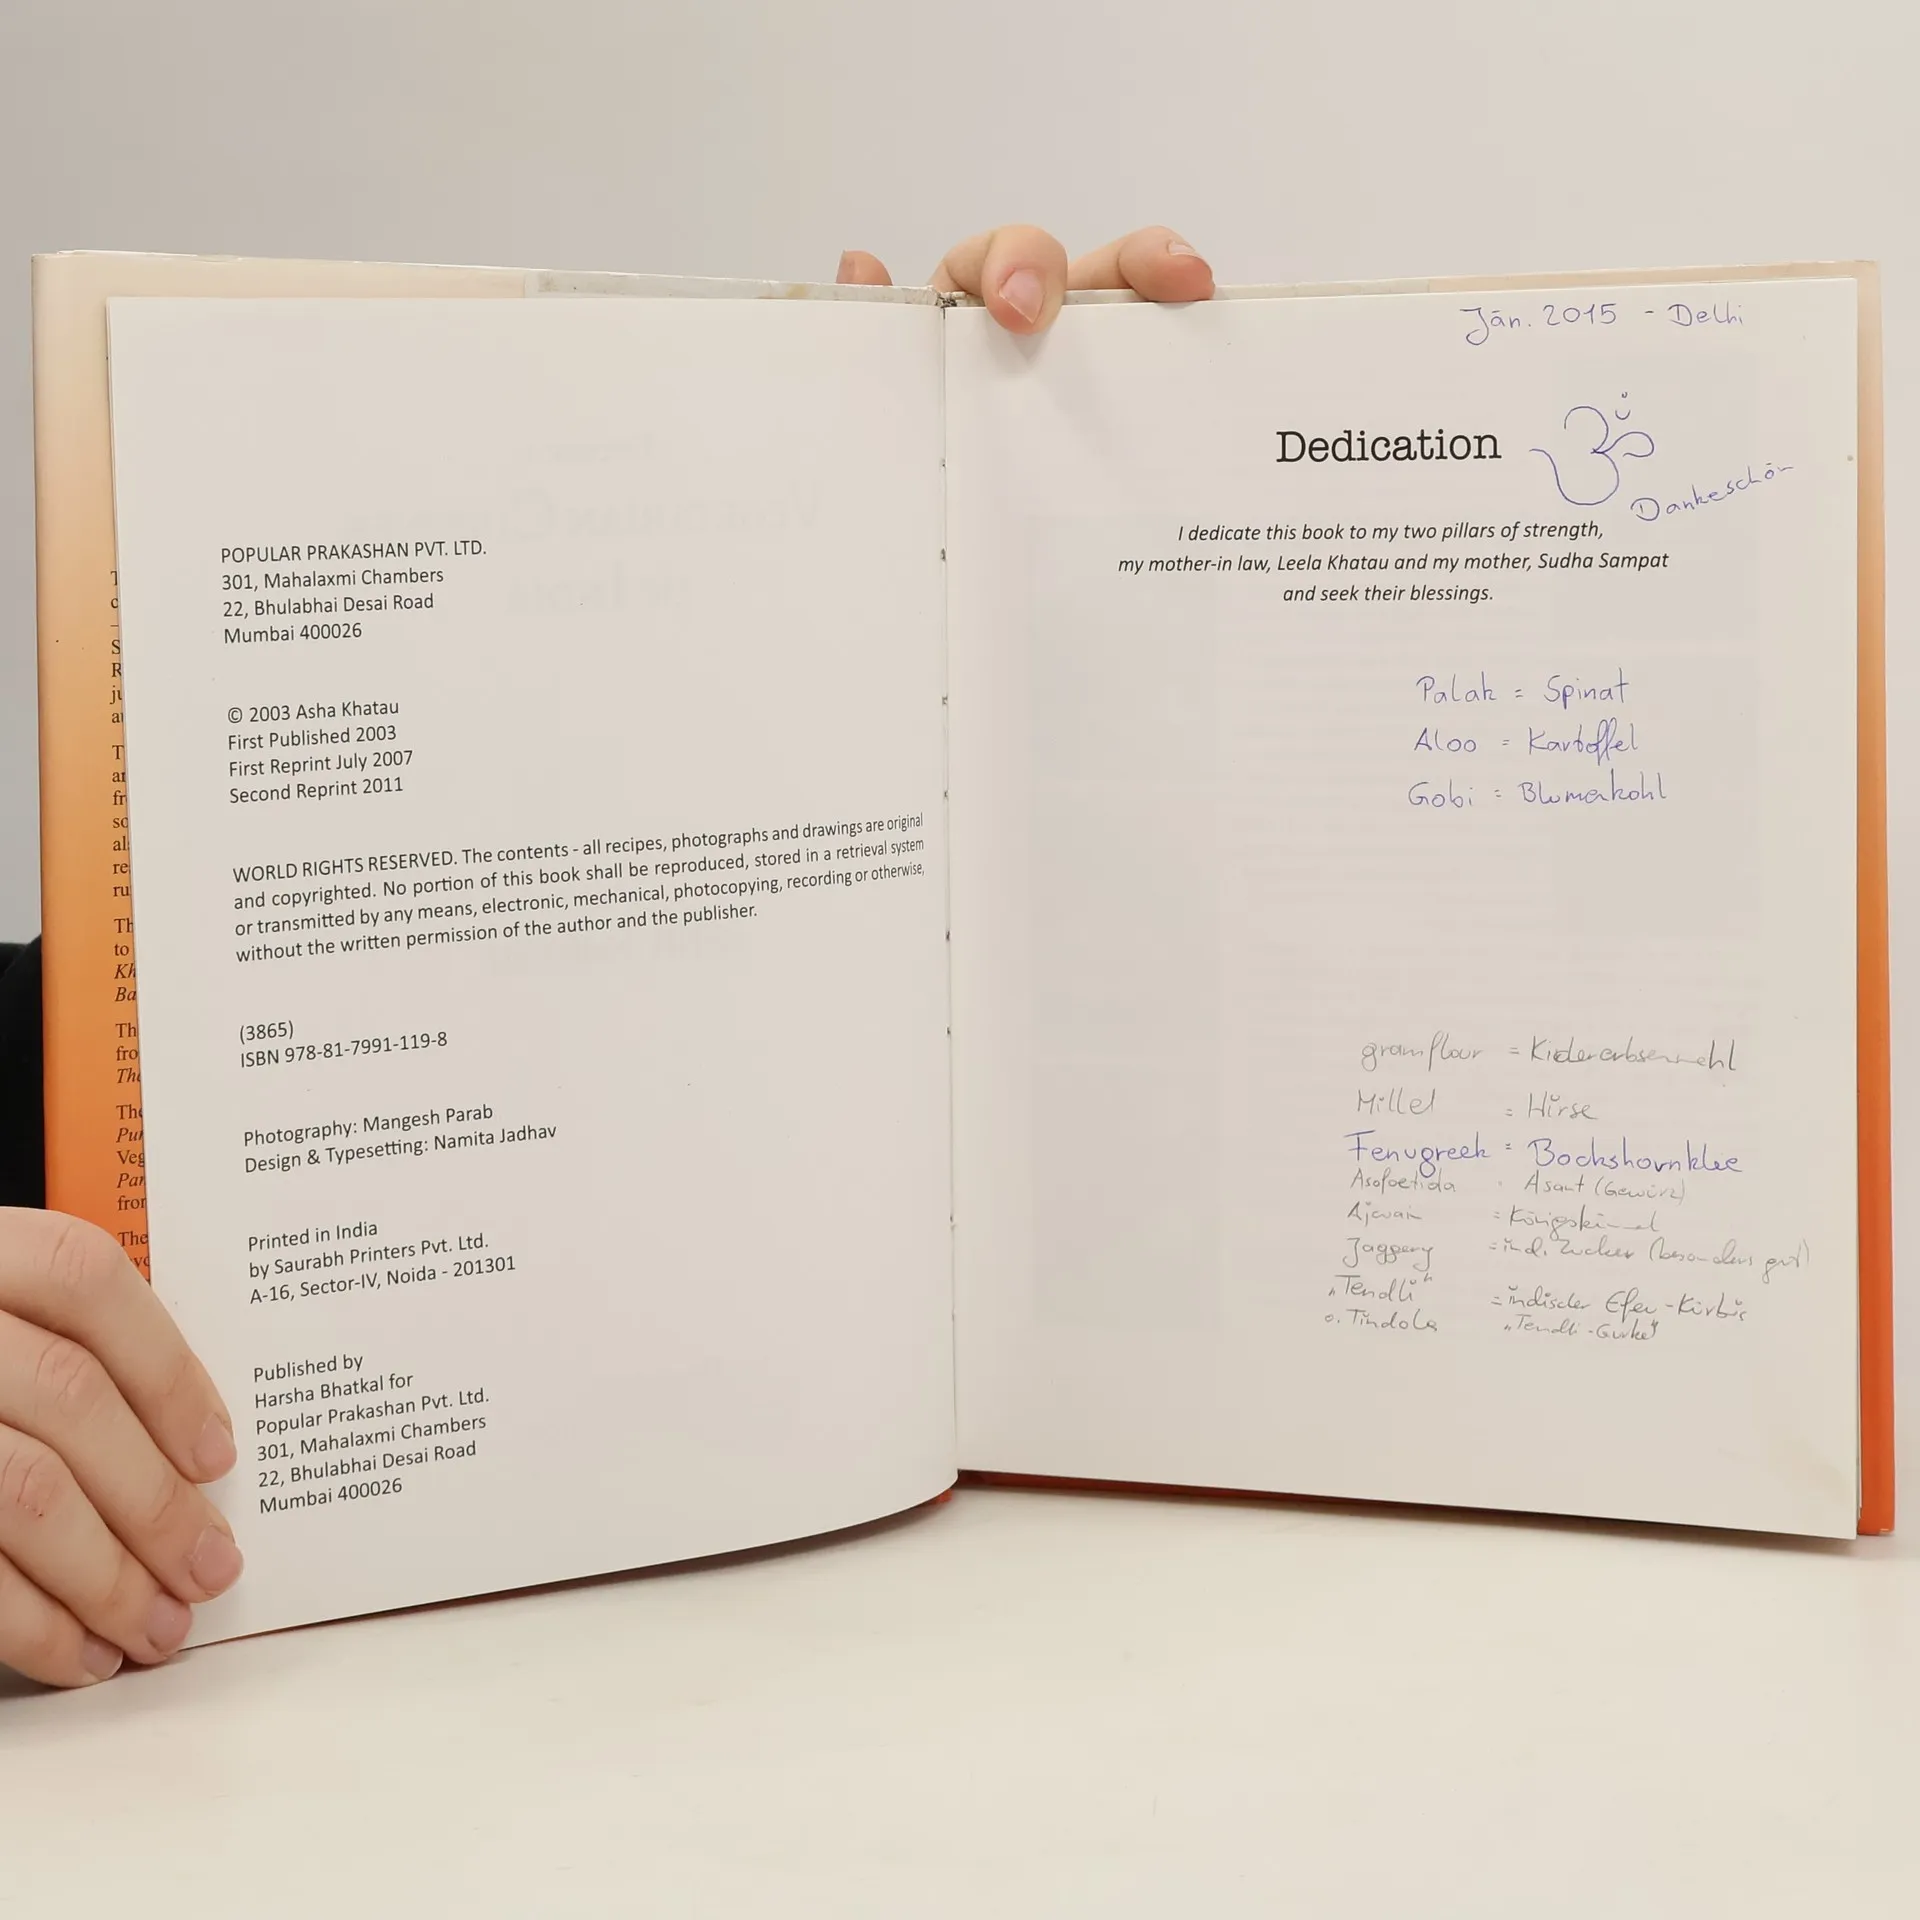 POPULAR PRAKASHAN PVT. LTD.
301, Mahalaxmi Chambers
22, Bhulabhai Desai Road
Mumbai 400026
© 2003 Asha Khatau
First Published 2003
First Reprint July 2007
Second Reprint 2011
WORLD RIGHTS RESERVED. The contents - all recipes, photographs and drawings are original
and copyrighted. No portion of this book shall be reproduced, stored in a retrieval system
or transmitted by any means, electronic, mechanical, photocopying, recording or otherwise,
without the written permission of the author and the publisher.
(3865)
ISBN 978-81-7991-119-8
Photography: Mangesh Parab
Design & Typesetting: Namita Jadhav
Printed in India
by Saurabh Printers Pvt. Ltd.
A-16, Sector-IV, Noida - 201301
Published by
Harsha Bhatkal for
Popular Prakashan Pvt. Ltd.
301, Mahalaxmi Chambers
22, Bhulabhai Desai Road
Mumbai 400026
Jän. 2015 - Delhi
Dedication ॐ
Dankeschön
I dedicate this book to my two pillars of strength,
my mother-in law, Leela Khatau and my mother, Sudha Sampat
and seek their blessings.
Palak = Spinat
Aloo = Kartoffel
Gobi = Blumenkohl
gramflour = Kichererbsenmehl
Millet = Hirse
Fenugreek = Bockshornklee
Asafoetida = Asant (Gewürz)
Ajwain = Königskümmel
Jaggery = ind. Zucker (besonders gut)
„Tendli" = indischer Efeu-Kürbis
o. Tindola „Tendli-Gurke"